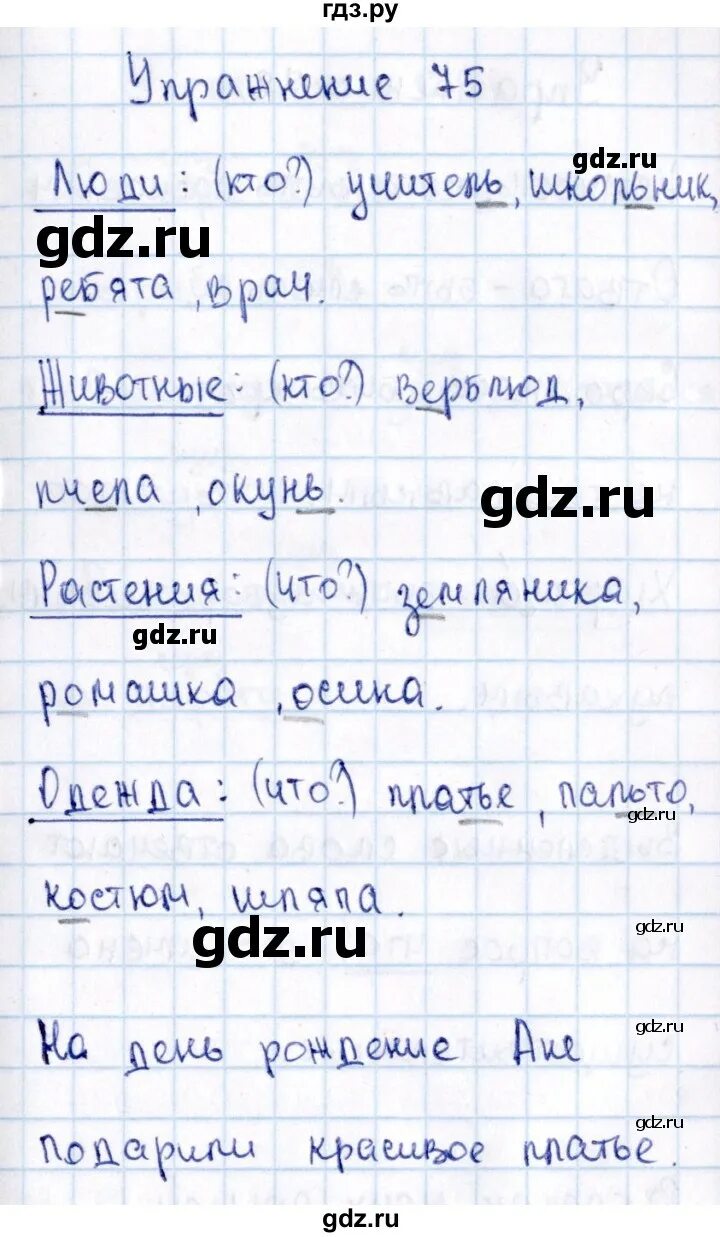 гдз.ру
Упражнение 75
gdz.ru
Люди: (кто?) учитель, школьник,
gdz.ru
ребята, врач.
Животные: (кто?) верблюд,
пчела, окунь.
gdz.ru
Растения: (что?) земляника,
gdz.ru
ромашка, осина.
Одежда: (что?) платье, пальто,
gdz.ru
костюм, шляпа.
gdz.ru
gdz.ru
На день рождение Ане
gdz.ru
подарили красивое платье.
gdz.ru
gdz.ru